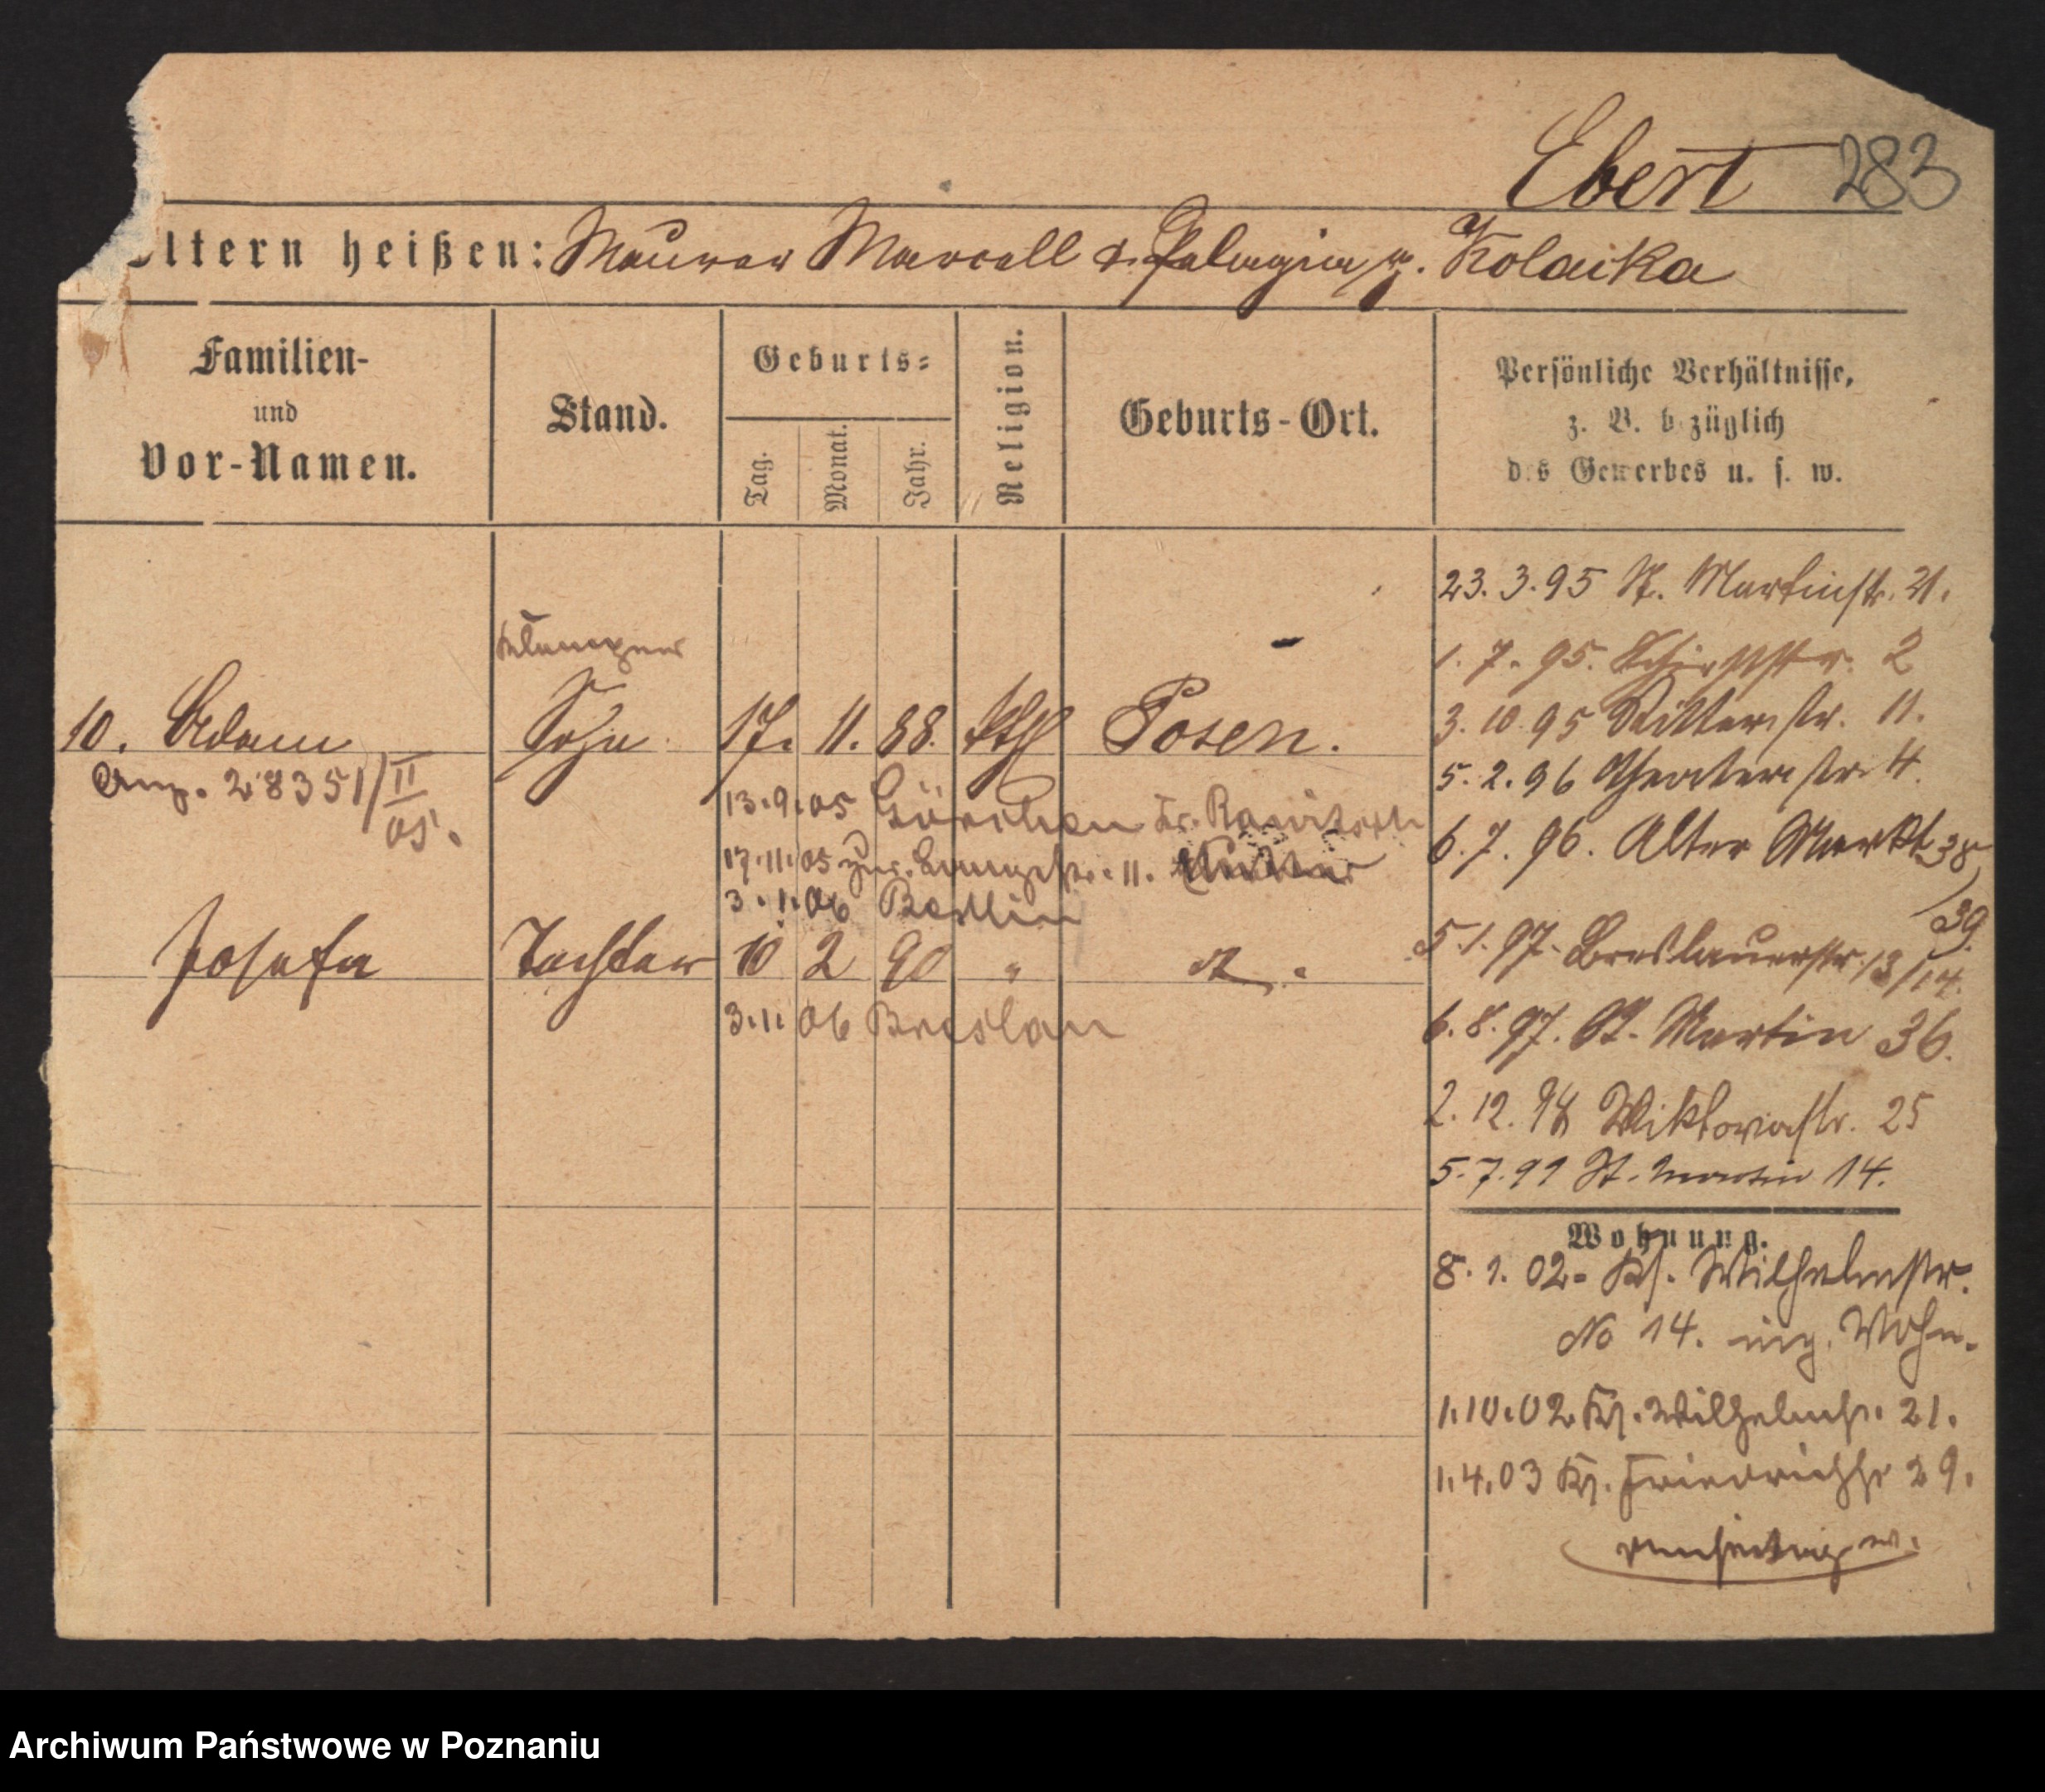 Ebert 283
ltern heißen: Maurer Marcell & Pelagia g. Kolaika
Familien-
und
Vor-Namen.
Stand.
Geburts-
Tag.
Monat.
Jahr.
Religion.
Geburts-Ort.
Persönliche Verhältnisse,
z. B. bezüglich
des Gewerbes u. s. w.
Klempner
10. Adam Sohn 17. 11. 88. kth Posen.
28351/II
05.
13.9.05 Görchen Kr. Rawitsch
17.11.05 11.
3.1.06 Berlin
Josefa Tochter 10 2 90 "
3.1.06 Breslau
23.3.95 St. Martinstr. 21.
1.7.95. 2
3.10.95 Ritterstr. 11.
5.2.96 Theaterstr. 4.
6.7.96. Alter Markt 38/
39.
5.1.97. Breslauerstr. 13/14.
6.8.97. St. Martin 36.
2.12.98 Viktoriastr. 25
5.7.99 St. Martin 14.
Wohnung.
8.1.02. Kl. Wilhelmstr.
No 14. eig. Wohn.
1.10.02 Kl. Wilhelmstr. 21.
1.4.03 Kl. Friedrichstr 29.
Archiwum Państwowe w Poznaniu